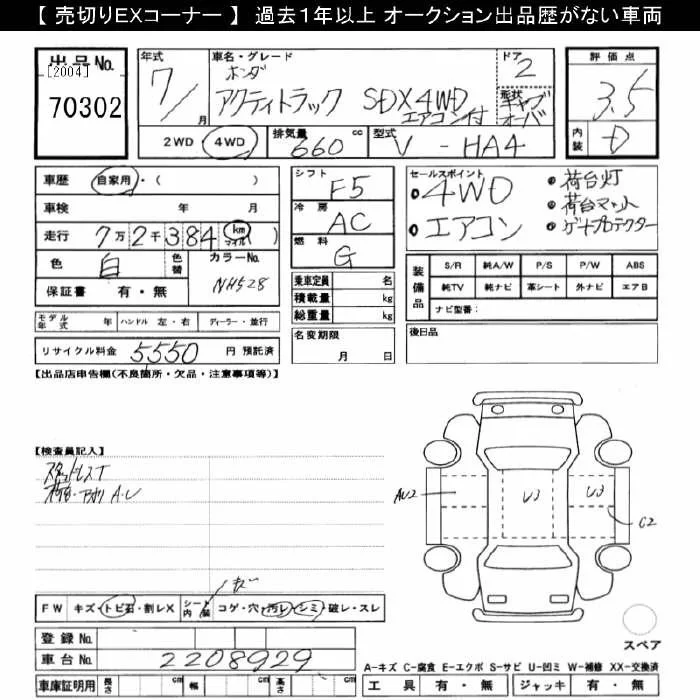 【 売切りEXコーナー 】 過去1年以上 オークション出品歴がない車両
出品No.
[2004]
70302
年式
7/
月
車名・グレード
ホンダ
アクティトラック SDX4WD
エアコン付
ドア
2
形状
キャブ
オーバ
評価点
3.5
内装
D
2WD 4WD
排気量
660 cc
型式
V - HA4
車歴 自家用・( )
車検 年 月
走行 7万2千384 km マイル )
色 白 色替 カラーNo. NH528
保証書 有・無
モデル年式 年 ハンドル 左・右 ディーラー・並行
リサイクル料金 5550 円 預託済
シフト
F5
冷房
AC
燃料
G
乗車定員 名
積載量 kg
総重量 kg
名変期限
月 日
セールスポイント
・4WD
・エアコン
・荷台灯
・荷台マット
・ゲートプロテクター
装備品
S/R 純A/W P/S P/W ABS
純TV 純ナビ 革シート 外ナビ エアB
ナビ型番:
後日品
【出品店申告欄(不良箇所・欠品・注意事項等)】
【検査員記入】
スタッドレスT
荷台・アオリ A・U
FW キズ・トビ石・割レX シート内装 コゲ・穴・汚レ・シミ・破レ・スレ
AU2
U3
U3
C2
スペア
登録No.
車台No. 2208929
車庫証明用 長さ cm 幅 cm 高さ cm
A-キズ C-腐食 E-エクボ S-サビ U-凹ミ W-補修 XX-交換済
工具 有・無 ジャッキ 有・無